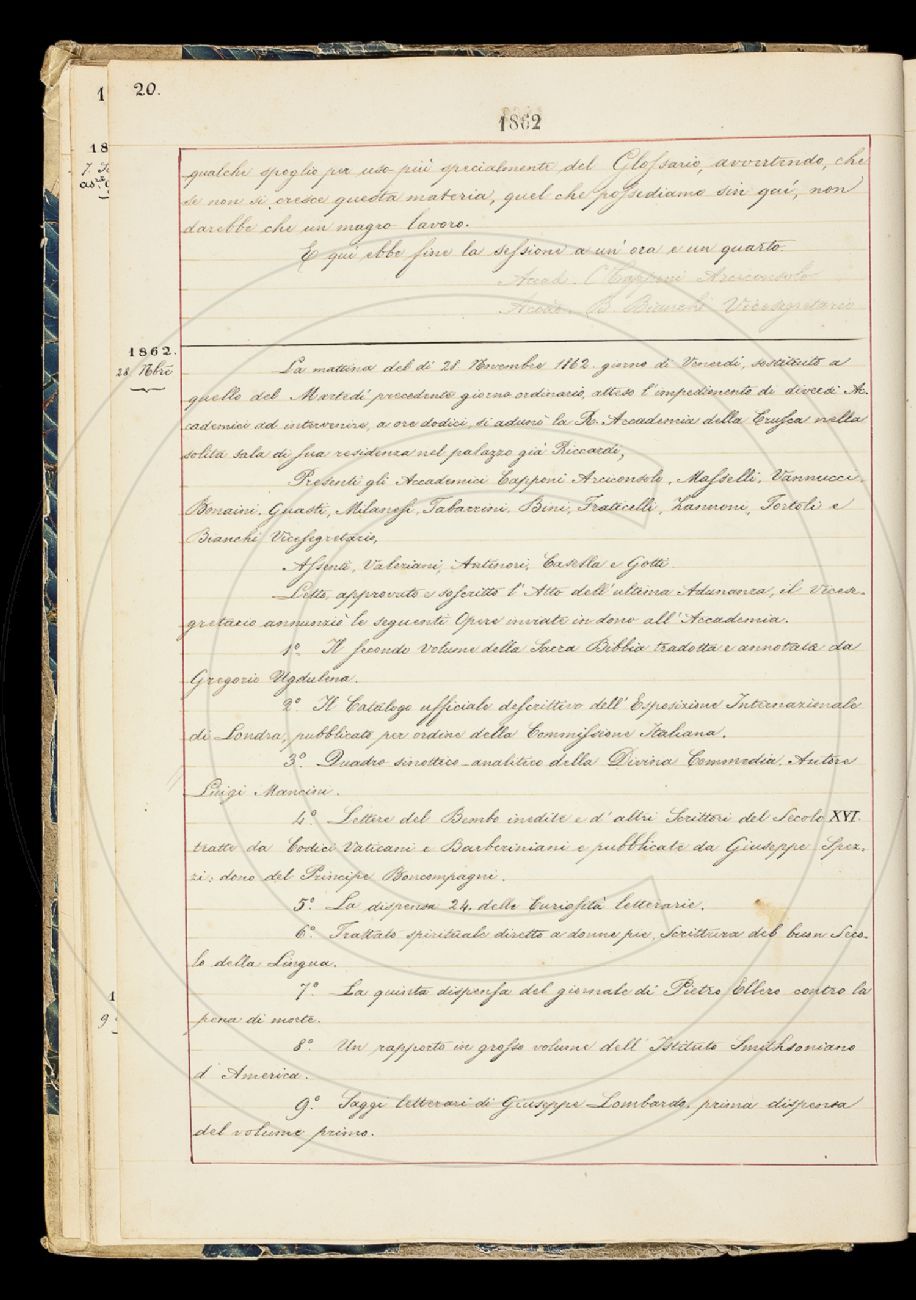 20.
1862
qualche spoglio per uso più specialmente del Glossario, avvertendo, che
se non si cresce questa materia, quel che possediamo sin quì, non
darebbe che un magro lavoro.
E quì ebbe fine la sessione a un' ora e un quarto.
Accad. G Capponi Arciconsolo
Accad. B Bianchi Vicesegretario
1862.
28 Nbre
La mattina del dì 28 Novembre 1862. giorno di Venerdì, sostituito a
quello del Martedì precedente giorno ordinario, atteso l'impedimento di diversi Ac-
cademici ad intervenire, a ore dodici, si adunò la R. Accademia della Crusca nella
solita sala di sua residenza nel palazzo già Riccardi,
Presenti gli Accademici Capponi Arciconsolo, Masselli, Vannucci,
Bonaini, Guasti, Milanesi, Tabarrini, Bini, Fraticelli, Zannoni, Tortoli e
Bianchi Vicesegretario,
Assenti, Valeriani, Antinori, Casella e Gotti.
Letto, approvato e soscritto l'Atto dell'ultima Adunanza, il Vicese-
gretario annunziò le seguenti Opere inviate in dono all'Accademia.
1º. Il secondo volume della Sacra Bibbia tradotta e annotata da
Gregorio Ugdulena.
2º. Il Catalogo ufficiale descrittivo dell'Esposizione Internazionale
di Londra, pubblicato per ordine della Commissione Italiana.
3º. Quadro sinottico-analitico della Divina Commedia. Autore
Luigi Mancini.
4º. Lettere del Bembo inedite e d'altri Scrittori del Secolo XVI.
tratte da Codici Vaticani e Barberiniani e pubblicate da Giuseppe Spez-
zi: dono del Principe Boncompagni.
5º. La dispensa 24. delle Curiosità letterarie.
6º. Trattato spirituale diretto a donne pie. Scrittura del buon Seco-
lo della Lingua.
7º. La quinta dispensa del giornale di Pietro Ellero contro la
pena di morte.
8º. Un rapporto in grosso volume dell'Istituto Smithsoniano
d'America.
9º. Saggi letterari di Giuseppe Lombardo. prima dispensa
del volume primo.